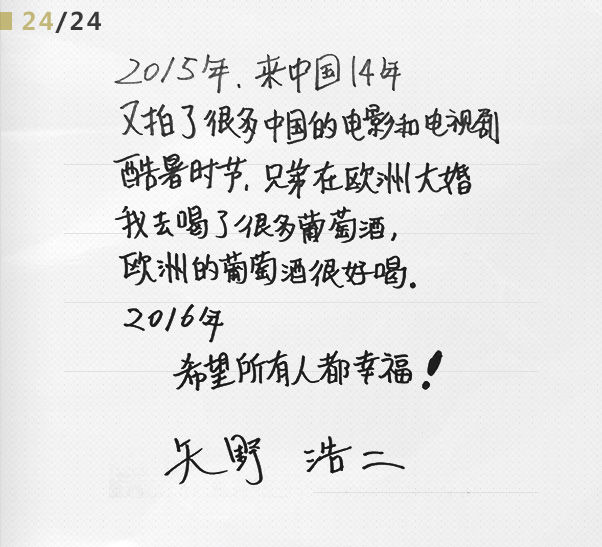 24/24
2015年. 来中国14年
又拍了很多中国的电影和电视剧
酷暑时节. 兄弟在欧洲大婚
我去喝了很多葡萄酒,
欧洲的葡萄酒很好喝.
2016年
希望所有人都幸福!
矢野 浩二